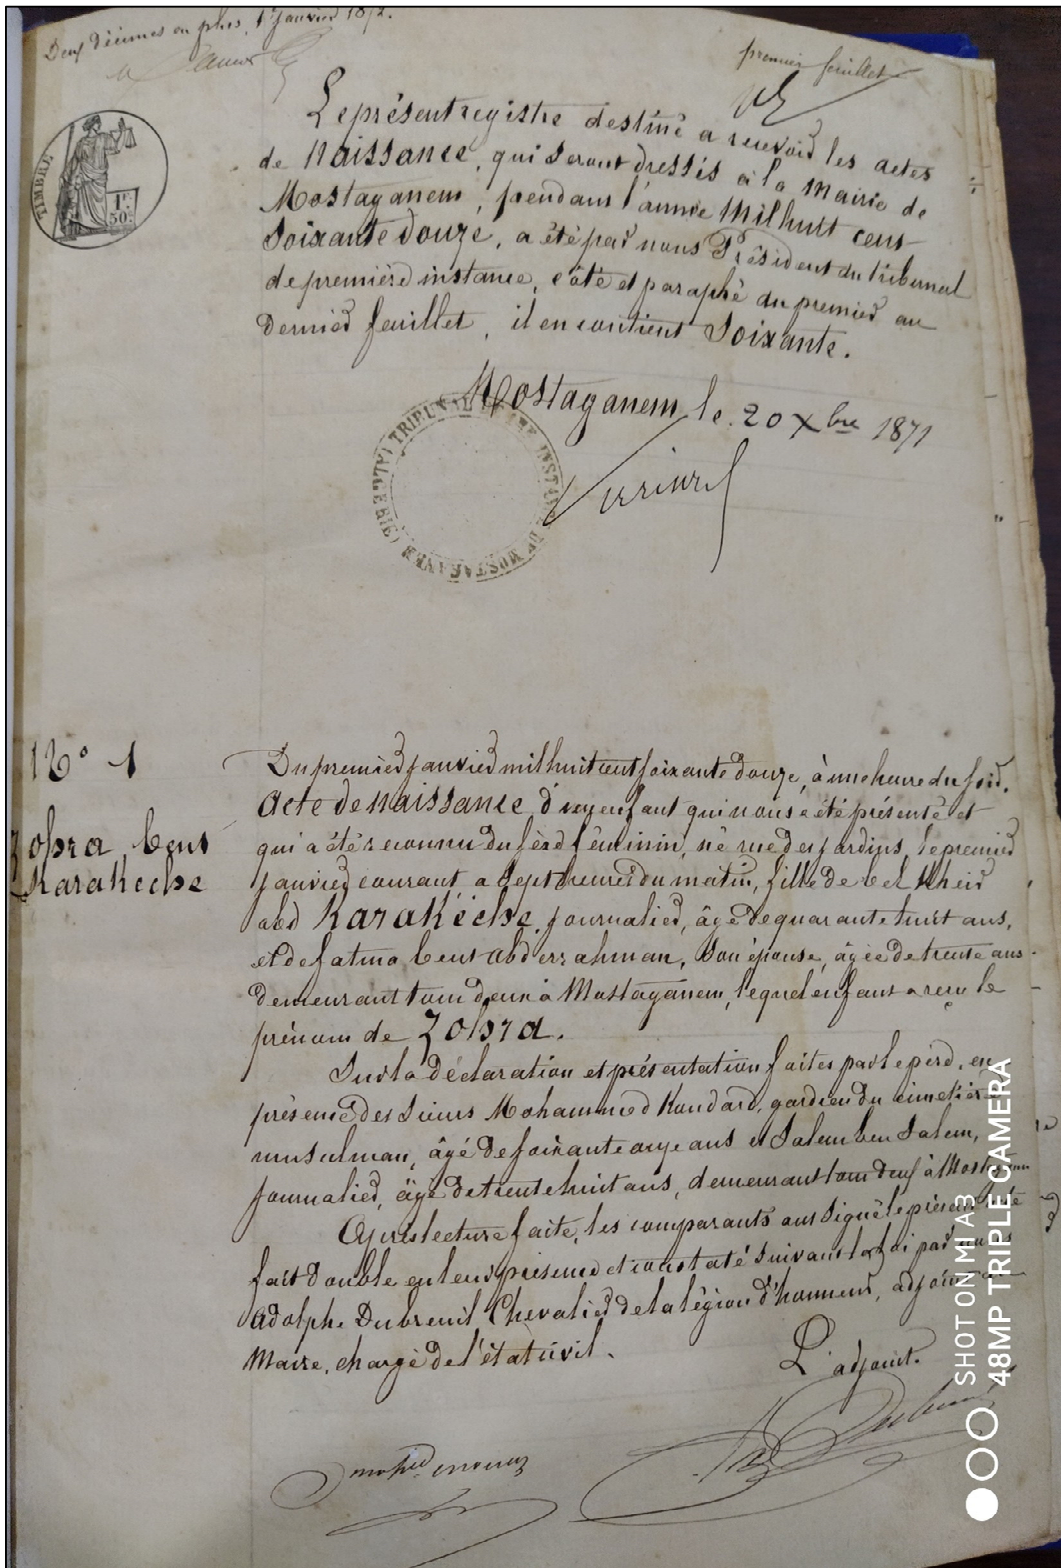 Deux décimes en plus, 1er Janvier 1872.
premier feuillet
TIMBRE
1F. 50c.
Le présent registre destiné à recevoir les actes
de Naissance, qui seront dressés à la Mairie de
Mostaganem, pendant l'année Mil huit cent
Soixante douze, a été par nous Président du tribunal
de première instance, côté et paraphé du premier au
dernier feuillet, il en contient Soixante.
Mostaganem le 20 Xbre 1871
TRIBUNAL DE 1ERE INSTANCE DE MOSTAGANEM (ALGERIE)
N° 1
Zohra bent
Karahèche
Du premier janvier mil huit cent soixante douze, à une heure du soir.
Acte de naissance d'un enfant qui nous a été présenté et
qui a été reconnu du sèxe féminin, né rue des jardins, le premier
janvier courant, a sept heures du matin, fille de bel Kheir
abd Karahèche, journalier, âgé de quarante huit ans,
et de fatma bent Abderrahman, son épouse, âgée de trente ans
demeurant tous deux à Mostaganem, lequel enfant a reçu le
prénom de Zohra.
Sur la déclaration et présentation faites par le père, en
présence des Sieurs Mohammed Kandard, gardien du cimetière
musulman, âgé de soixante onze ans et Salem ben Salem,
journalier, âgé de trente huit ans, demeurant tous deux à Mostaganem
Après lecture faite, les comparants ont signé le présent acte
fait double en leur présence et constaté suivant la loi par nous
Adolphe Dubreuil Chevalier de la légion d'honneur, adjoint au
Maire, chargé de l'état civil.
L'adjoint.
SHOT ON MI A3
48MP TRIPLE CAMERA